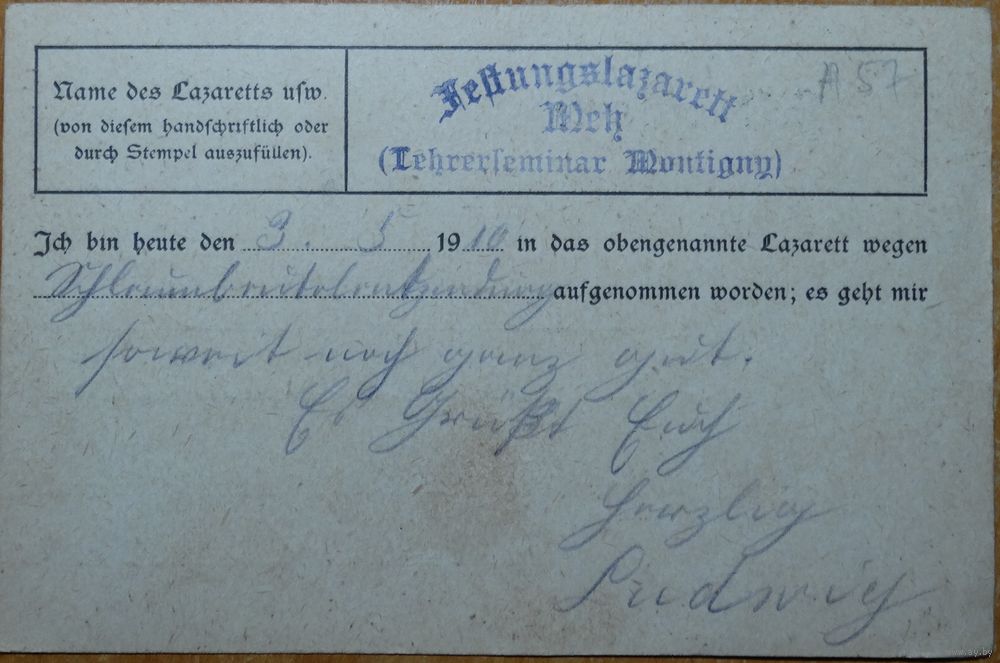 Name des Lazaretts usw.
(von diesem handschriftlich oder
durch Stempel auszufüllen).
Festungslazarett
Metz
(Lehrerseminar Montigny)
A 57
Ich bin heute den 3. 5 1916 in das obengenannte Lazarett wegen
Schleimbeutelentzündung aufgenommen worden; es geht mir
soweit noch ganz gut.
Es Grüßt Euch
Herzlich
Ludwig
www.ay.by